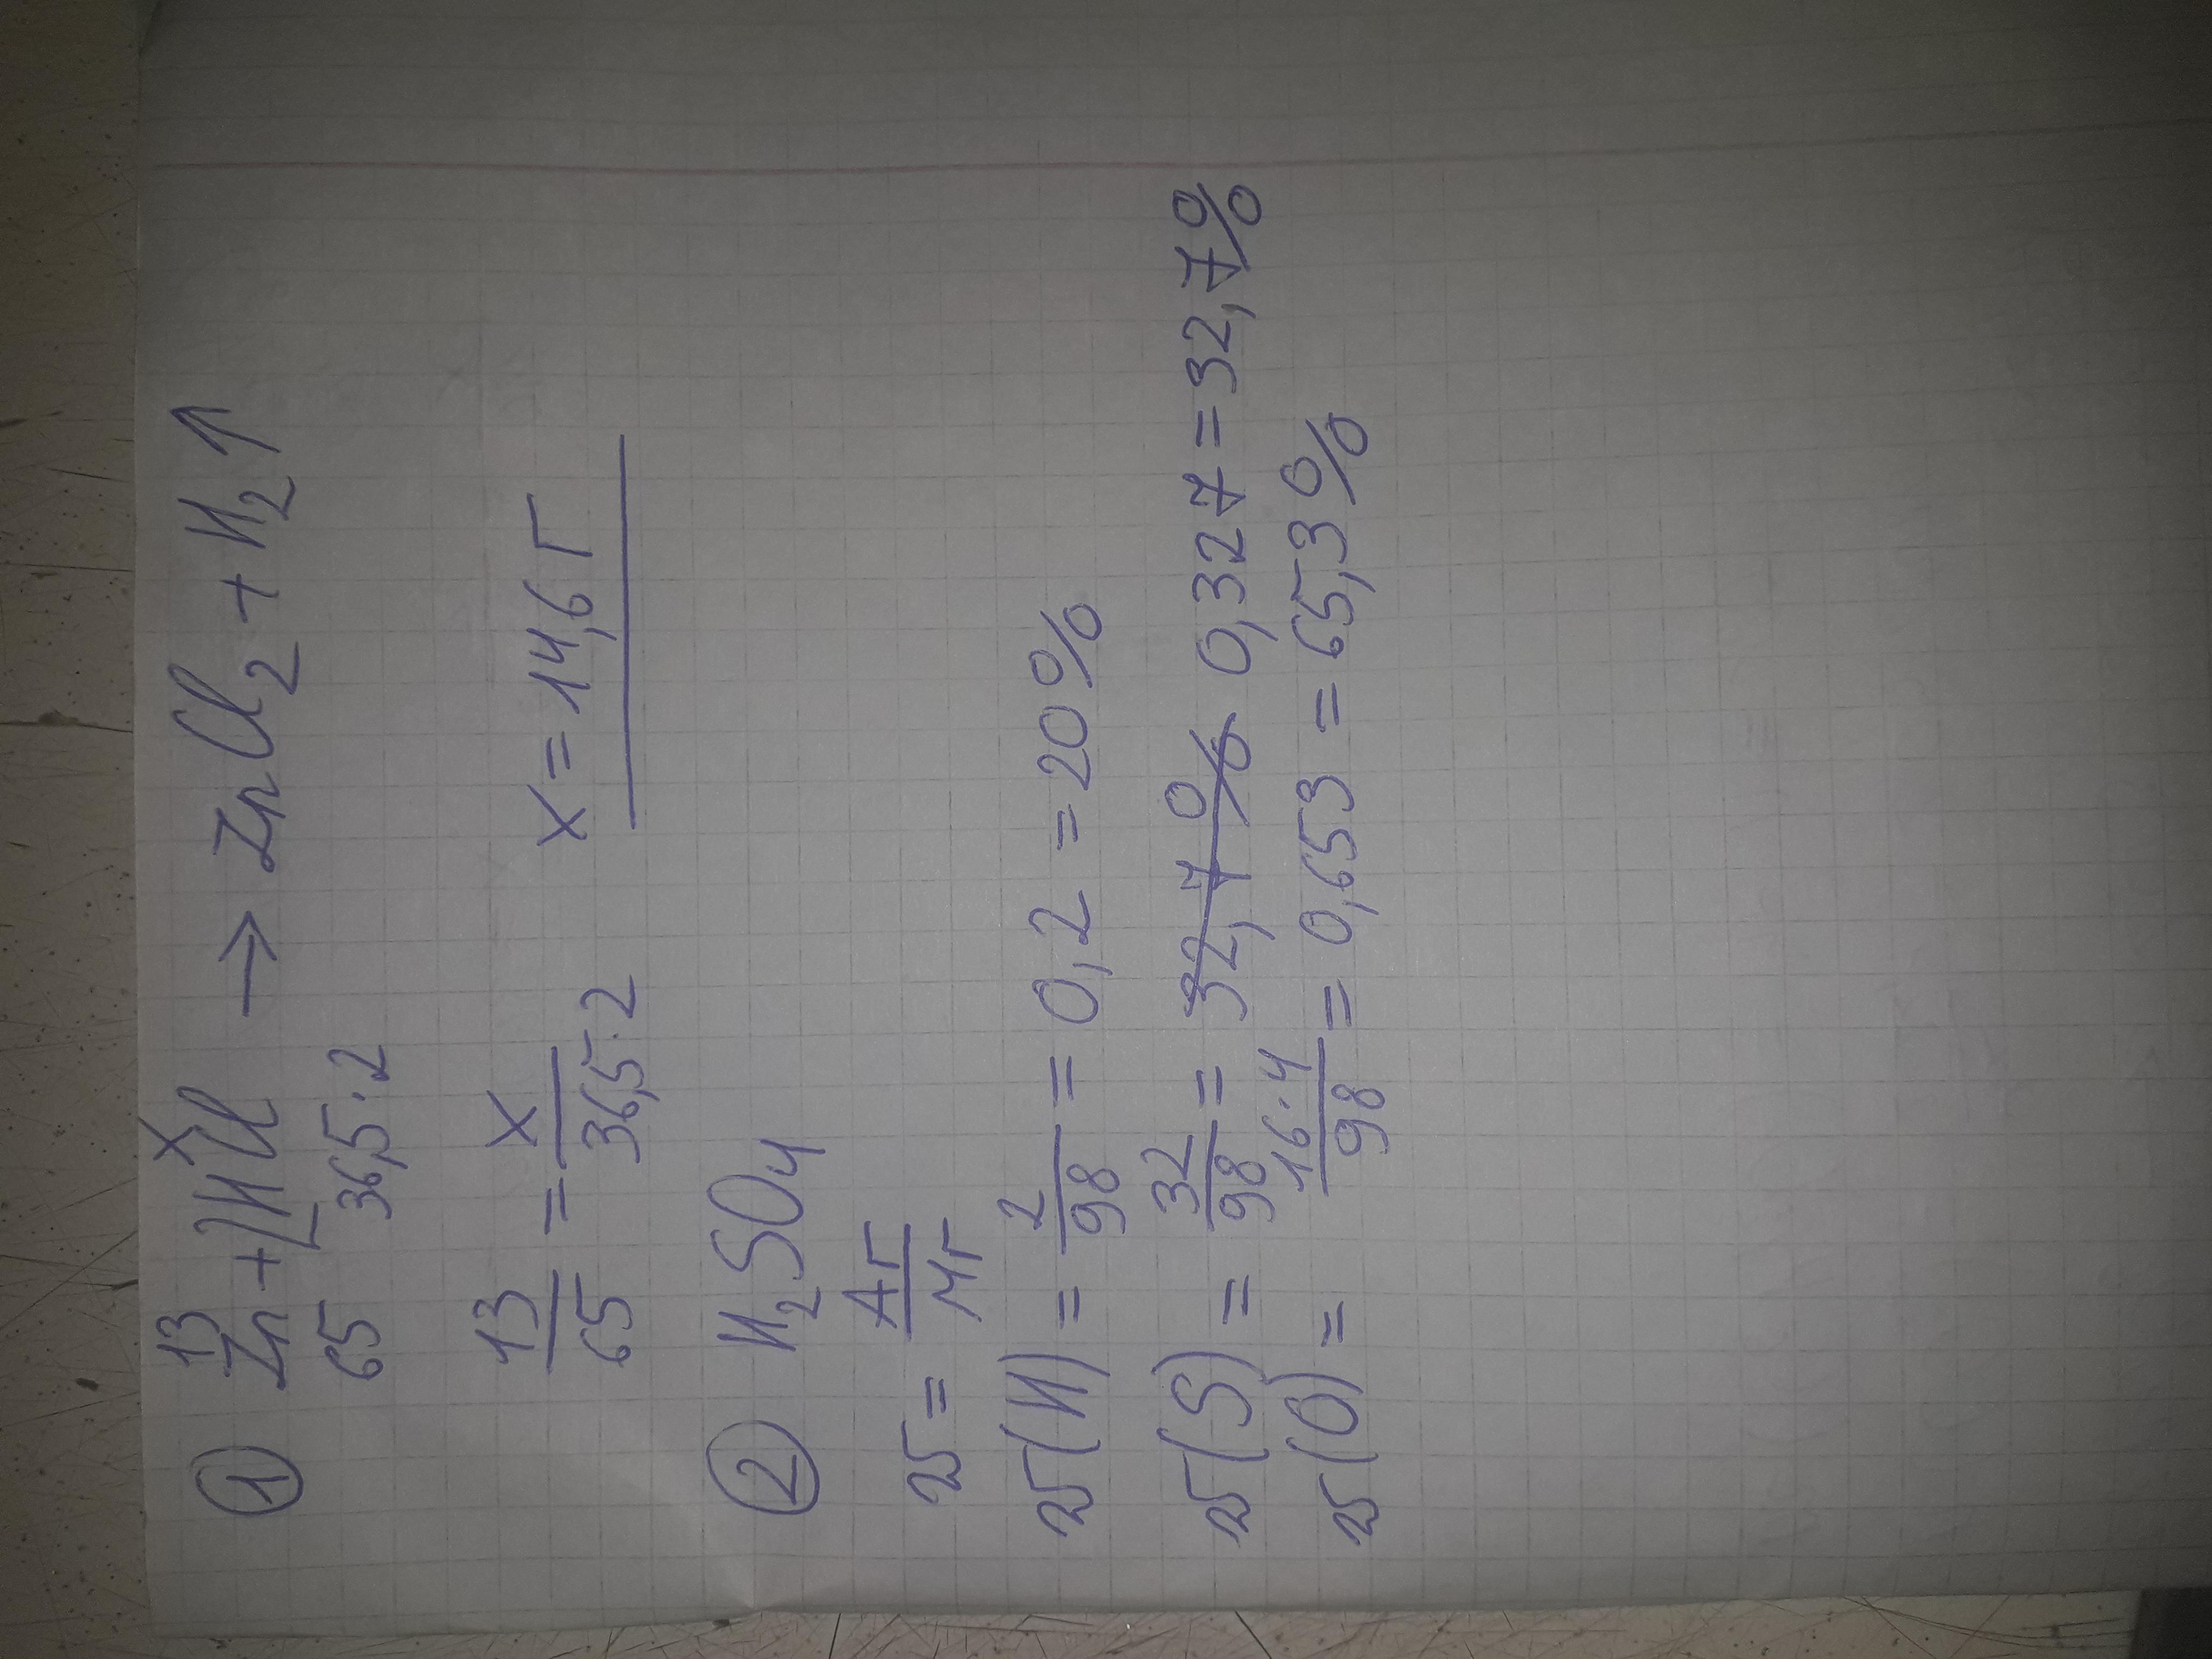 ① 13 X
Zn + 2HCl → ZnCl₂ + H₂↑
65 36,5·2
13/65 = X/36,5·2 X = 14,6 г
② H₂SO₄
ω = Ar/Mr
ω(H) = 2/98 = 0,2 = 20%
ω(S) = 32/98 = 32,7% 0,327 = 32,7%
ω(O) = 16·4/98 = 0,653 = 65,3%